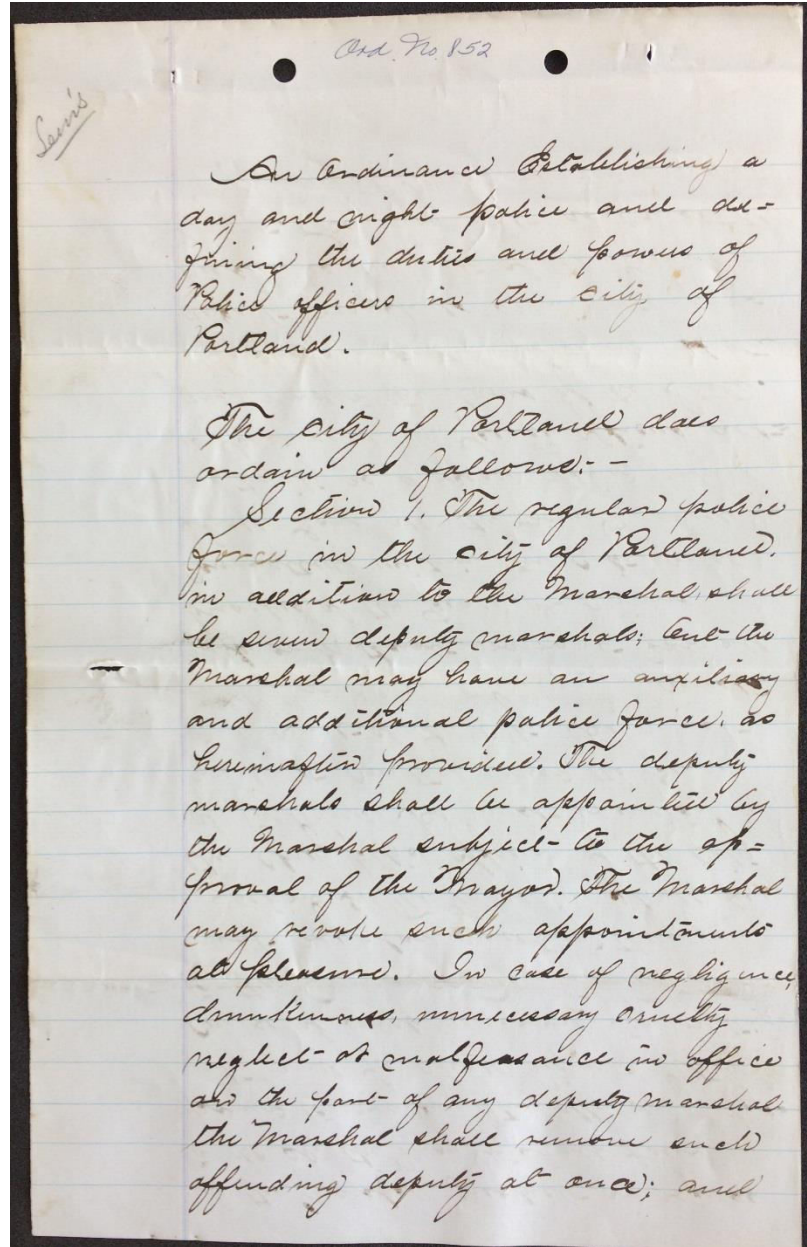 Ord. No. 852
Lewis
An Ordinance Establishing a
day and night police and de=
fining the duties and powers of
Police officers in the city of
Portland.
The city of Portland does
ordain as follows:-
Section 1. The regular police
force in the city of Portland,
in addition to the Marshal, shall
be seven deputy marshals; but the
Marshal may have an auxiliary
and additional police force, as
hereinafter provided. The deputy
marshals shall be appointed by
the Marshal subject to the ap=
proval of the Mayor. The Marshal
may revoke such appointments
at pleasure. In case of negligence,
drunkenness, unnecessary cruelty
neglect or malfeasance in office
on the part of any deputy marshal
the Marshal shall remove such
offending deputy at once; and